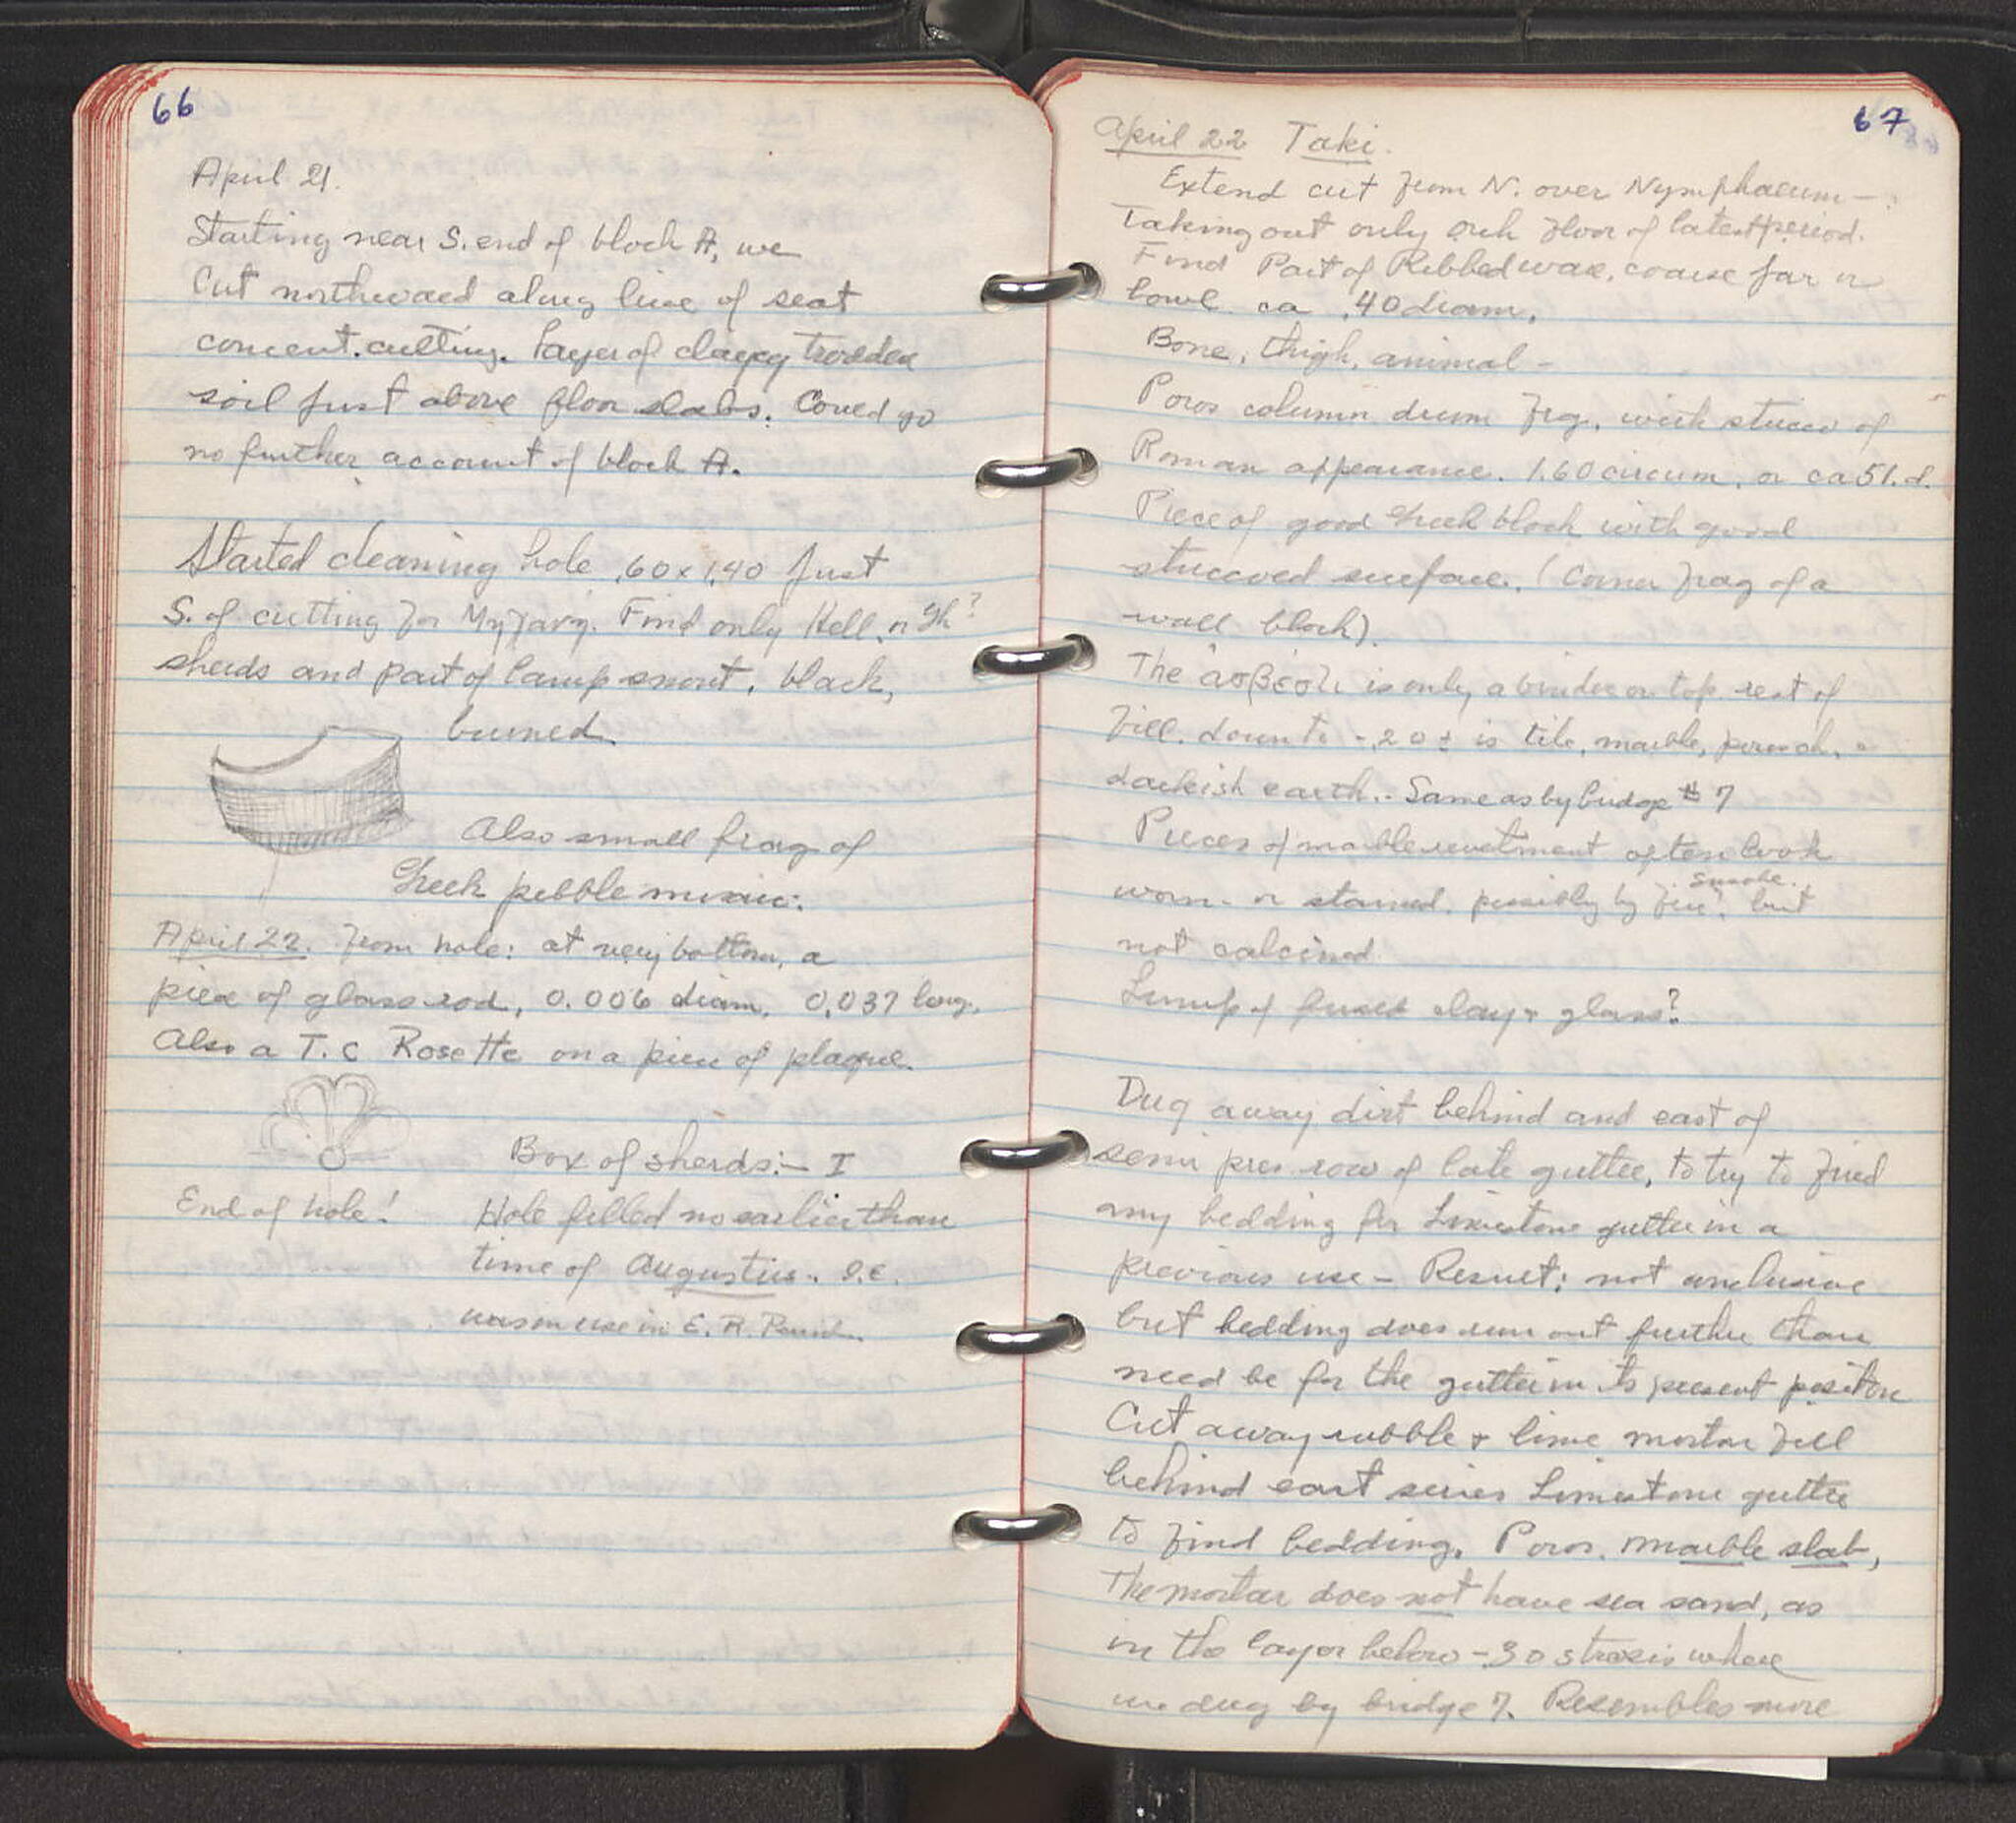 66
April 21.
Starting near S. end of block A, we
Cut northward along line of seat
concent. cutting. Layer of clayey trodden
soil just above floor slabs. Could go
no further account of block A.
Started cleaning hole .60 x 1.40 just
S. of cutting for Find only Hell. n Gk?
sherds and part of lamp snout, black,
burned.
Also small frag of
Greek pebble mosaic.
April 22. From hole: at very bottom, a
piece of glass rod, 0.006 diam, 0.037 long.
Also a T.C Rosette on a piece of plaque.
Box of sherds:- I
End of hole!
Hole filled no earlier than
time of Augustus. I.e.
was in use in E. R. Period.
67
April 22 Taki.
Extend cut from N. over Nymphaeum -
Taking out only floor of latest period.
Find Part of Ribbed ware, coarse jar or
bowl ca .40 diam.
Bone, thigh, animal -
Poros column drum frg. with stucco of
Roman appearance. 1.60 circum, or ca 51. d.
Piece of good Greek block with good
stuccoed surface. (Corner frag of a
wall block).
The is only a binder on top. rest of
fill. down to -.20 ± is tile, marble, poros
darkish earth. - Same as by bridge # 7
Pieces of marble revetment often look
worn or stained, possibly by fire, but
smoke.
not calcined.
Lump of fused clay + glass?
Dug away dirt behind and east of
row of late gutter, to try to find
any bedding for Limestone gutter in a
previous use - Result: not conclusive
but bedding does run out further than
need be for the gutter in its present position
Cut away rubble + lime mortar fill
behind east series Limestone gutter
to find bedding. Poros. marble slab,
The mortar does not have sea sand, as
in the layer below -.30 strosis where
we dug by bridge 7. Resembles more